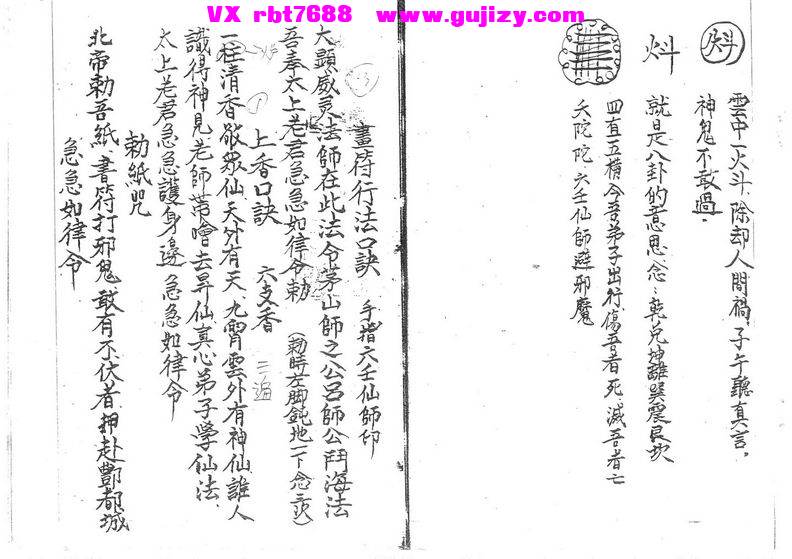 VX rbt7688 www.gujizy.com
㪵
雲中一火斗，除却人間禍，子午聽真言，
神鬼不敢過。
㪵
就是八卦的意思念：乾兌坤離巽震艮坎
四直五橫今吾弟子出行傷吾者死滅吾者亡
六壬仙師避邪魔
畫符行法口訣 手指六壬仙師印
大顯威灵法師在此法令茅山師之公呂師公鬥海法
吾奉太上老君急急如律令勅（勅時左脚鈍地一下念三次）
上香口訣 六支香 三遍
一柱清香敬眾仙天外有天九霄雲外有神仙誰人
識得神見老師帶嚕去昇仙真心弟子學仙法，
太上老君急急護身邊急急如律令
勅紙咒
北帝勅吾紙書符打邪鬼敢有不伏者押赴酆都城
急急如律令